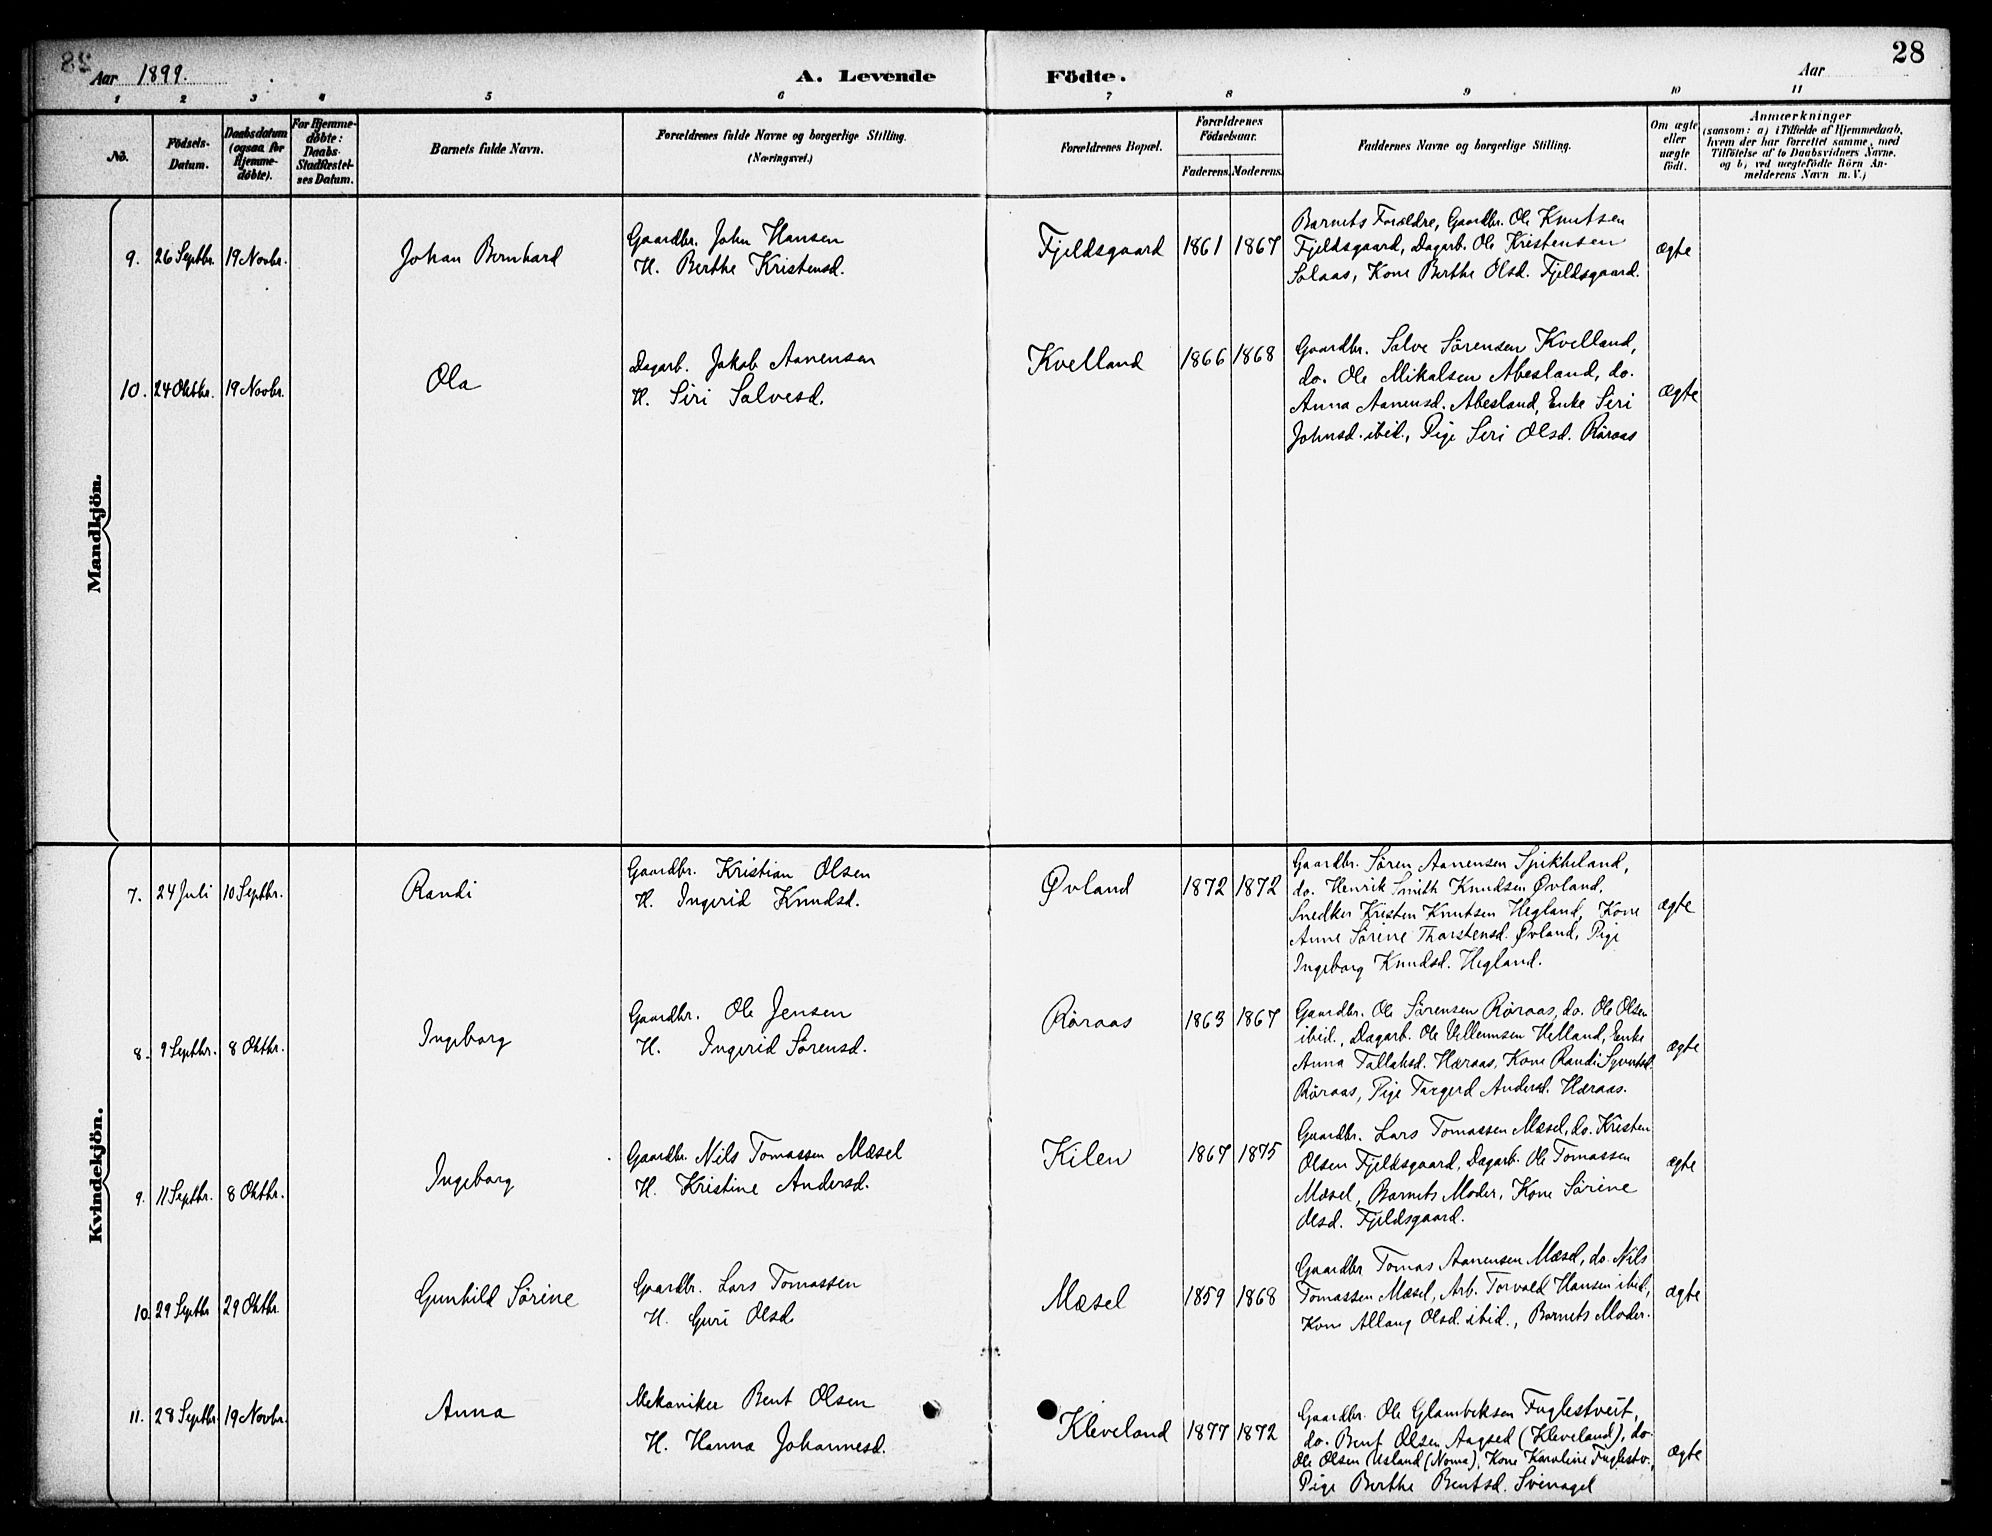 28
Aar 1899.
A. Levende Födte.
Aar
28
1 2 3 4 5 6 7 8 9 10 11
No.
Födsels-
Datum.
Daabsdatum
(ogsaa for
Hjemme-
döbte).
For Hjemme-
döbte:
Daabs-
Stadfæstel-
ses Datum.
Barnets fulde Navn.
Forældrenes fulde Navne og borgerlige Stilling.
(Næringsvei.)
Forældrenes Bopæl.
Forældrenes
Födselsaar.
Faderens. Moderens.
Faddernes Navne og borgerlige Stilling.
Om ægte
eller
uægte
födt.
Anmærkninger
(saasom: a) i Tilfælde af Hjemmedaab,
hvem der har forrettet samme, med
Tilföielse af to Daabsvidners Navne.
og b) ved uægtefödte Börn An-
melderens Navn m. V.)
Mandkjön.
9. 26 Septbr. 19 Novbr.
Johan Bernhard
Gaardbr. John Hansen
H. Berthe Kristensd.
Fjeldsgaard 1861 1867
Barnets Forældre, Gaardbr. Ole Knutsen
Fjeldsgaard, Dagarb. Ole Kristensen
Solaas, Kone Berthe Olsd. Fjeldsgaard.
ægte
10. 24 Oktbr. 19 Novbr.
Ola
Dagarb. Jakob Aanensen
H. Siri Salvesd.
Kvelland 1866 1868
Gaardbr. Salve Sørensen Kvelland,
do. Ole Mikalsen Abesland, do.
Anna Aanensd. Abesland, Enke Seri
Johnsd. ibid., Pige Seri Olsd. Røraas
ægte
Kvindekjön.
7. 24 Juli 10 Septbr.
Randi
Gaardbr. Kristian Olsen
H. Ingerid Knudsd.
Øvland 1872 1872
Gaardbr. Søren Aanensen Spikkeland,
do. Henrik Smith Knudsen Øvland,
Snedker Kristen Knutsen Hegland, Kone
Anne Sørine Thorstensd. Øvland, Pige
Ingeborg Knudsd. Hegland.
ægte
8. 9 Septbr. 8 Oktbr.
Ingeborg
Gaardbr. Ole Jensen
H. Ingerid Sørensd.
Røraas 1863 1867
Gaardbr. Ole Sørensen Røraas, do. Ole Olsen
ibid., Dagarb. Ole Vellemsen Helland, Enke
Anna Tallaksd. Hæraas, Kone Randi Syvertsd.
Røraas, Pige Targerd Andersd. Hæraas.
ægte
9. 11 Septbr. 8 Oktbr.
Ingeborg
Gaardbr. Nils Tomassen Mæsel
H. Kristine Andersd.
Kilen 1867 1875
Gaardbr. Lars Tomassen Mæsel, do. Kristen
Olsen Fjeldsgaard, Dagarb. Ole Tomassen
Mæsel, Barnets Moder, Kone Sørine
Olsd. Fjeldsgaard.
ægte
10. 29 Septbr 29 Oktbr.
Gunhild Sørine
Gaardbr. Lars Tomassen
H. Guri Olsd.
Mæsel 1859 1868
Gaardbr Tomas Aanensen Mæsel, do. Nils
Tomassen Mæsel, Arb. Torvald Hansen ibid.,
Kone Allaug Olsd. ibid., Barnets Moder.
ægte
11. 28 Septbr. 19 Novbr.
Anna
Mekaniker Bent Olsen
H. Hanna Johannesd.
Kleveland 1877 1872
Gaardbr. Ole Glambeksen Fuglestveit,
do. Bent Olsen Aagsed (Kleveland), do.
Ole Olsen Usland (Noma), Kone Karoline Fuglestv.,
Pige Berthe Bentsd. Svinagel
ægte